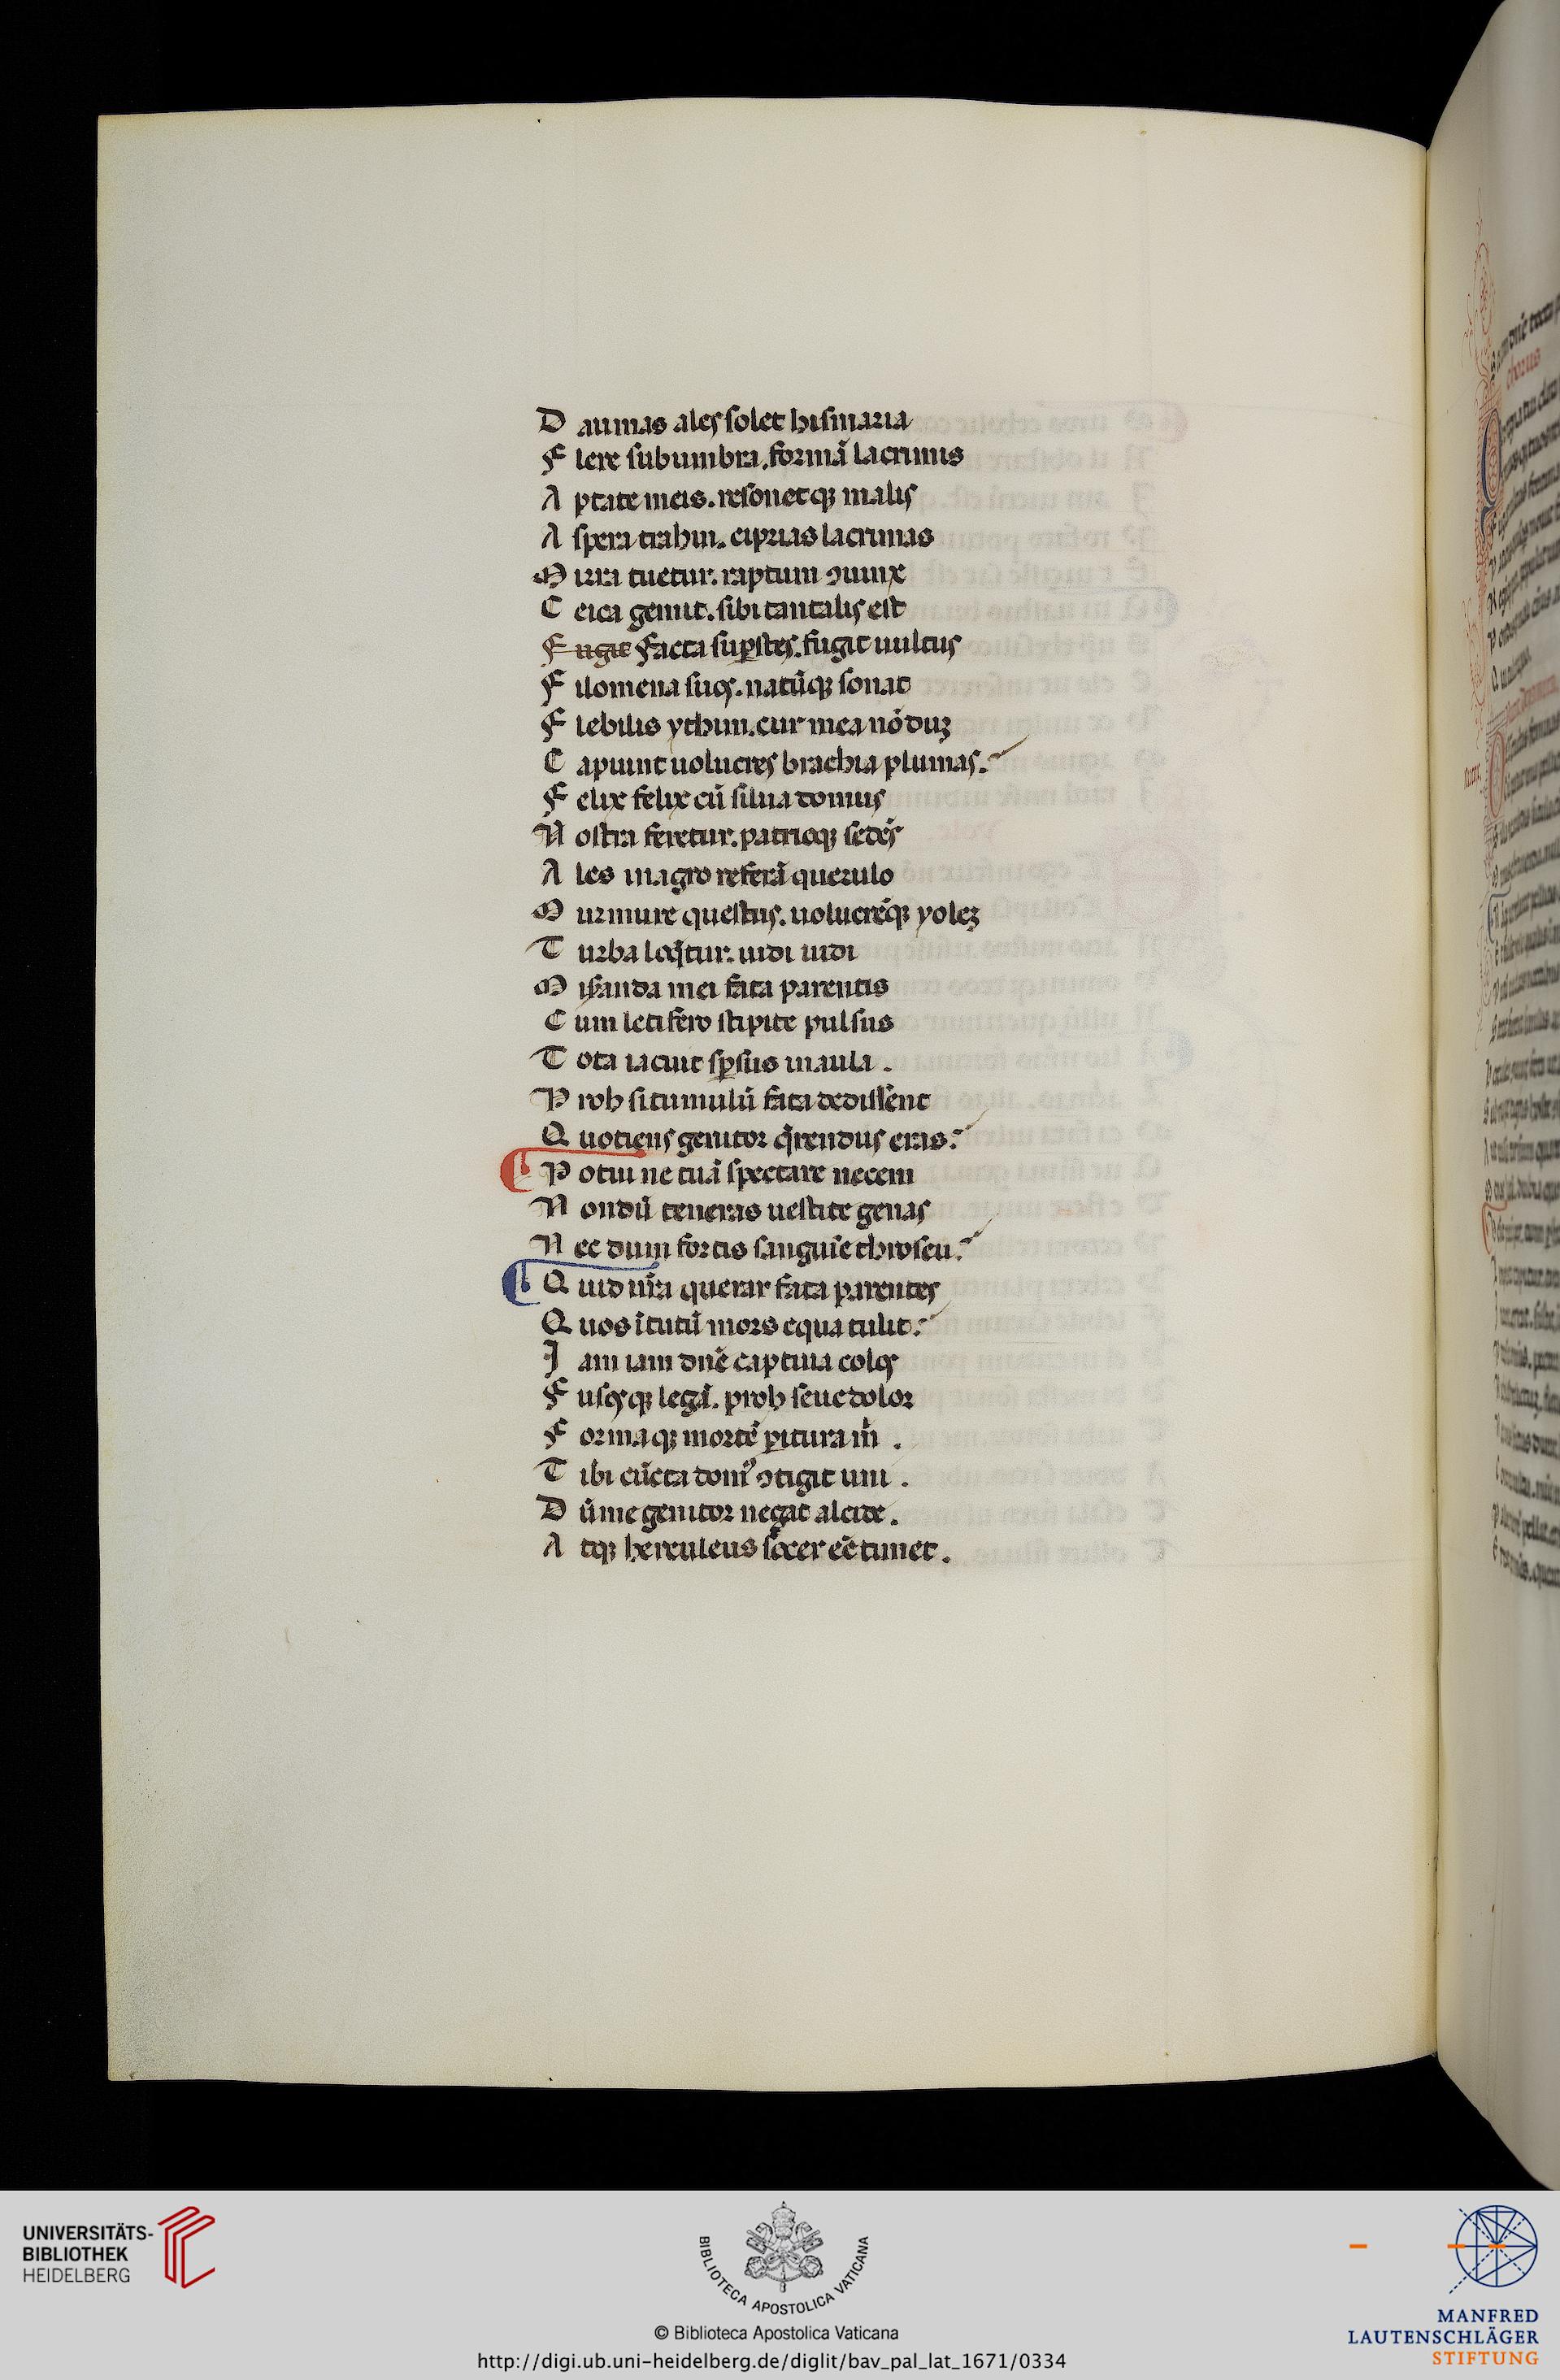 D aunias ales solet bismaria
F lere sub umbra. formā lacrimis
A ptate meis. resonetqꝫ malis
A spera trahin. ciprias lacrimas
M irra tuetur. raptum ꝯiunx
C eica gemit. sibi tantalis est
F ugit facta suꝑstes. fugit uultus
F ilomena suos. natūqꝫ sonat
F lebilis ythim. cur mea nōduꝫ
C apiunt uolucres brachia plumas.
F elix felix cū silua domus
N ostra feretur. patrioqꝫ sedēs
A les in agro referā querulo
M urmure questus. uolucrēqꝫ yoleꝫ
T urba loq̄tur. uidi uidi
M isanda mei fata parentis
C um letifero stipite pulsus
T ota iacuit sꝑsus in aula .
P roh si tumulū fata dedissent
Q uotiens genitor q̄rendus eras.
P otui ne tuā spectare necem
N ondū teneras uestite genas
N ec dum fortis sanguīe throseu.
Q uid nr̄a querar fata parentes
Q uos ī tutū mors equa tulit.
I am iam dn̄e captiua colos
F usosqꝫ legā. proh seue dolor
F ormaqꝫ mortē ꝑitura m̄ .
T ibi cūcta domꝰ ꝯtigit uni .
D ū me genitor negat alcide .
A tqꝫ herculeus socer eē timet .
UNIVERSITÄTS-
BIBLIOTHEK
HEIDELBERG
BIBLIOTECA APOSTOLICA VATICANA
© Biblioteca Apostolica Vaticana
http://digi.ub.uni-heidelberg.de/diglit/bav_pal_lat_1671/0334
MANFRED
LAUTENSCHLÄGER
STIFTUNG